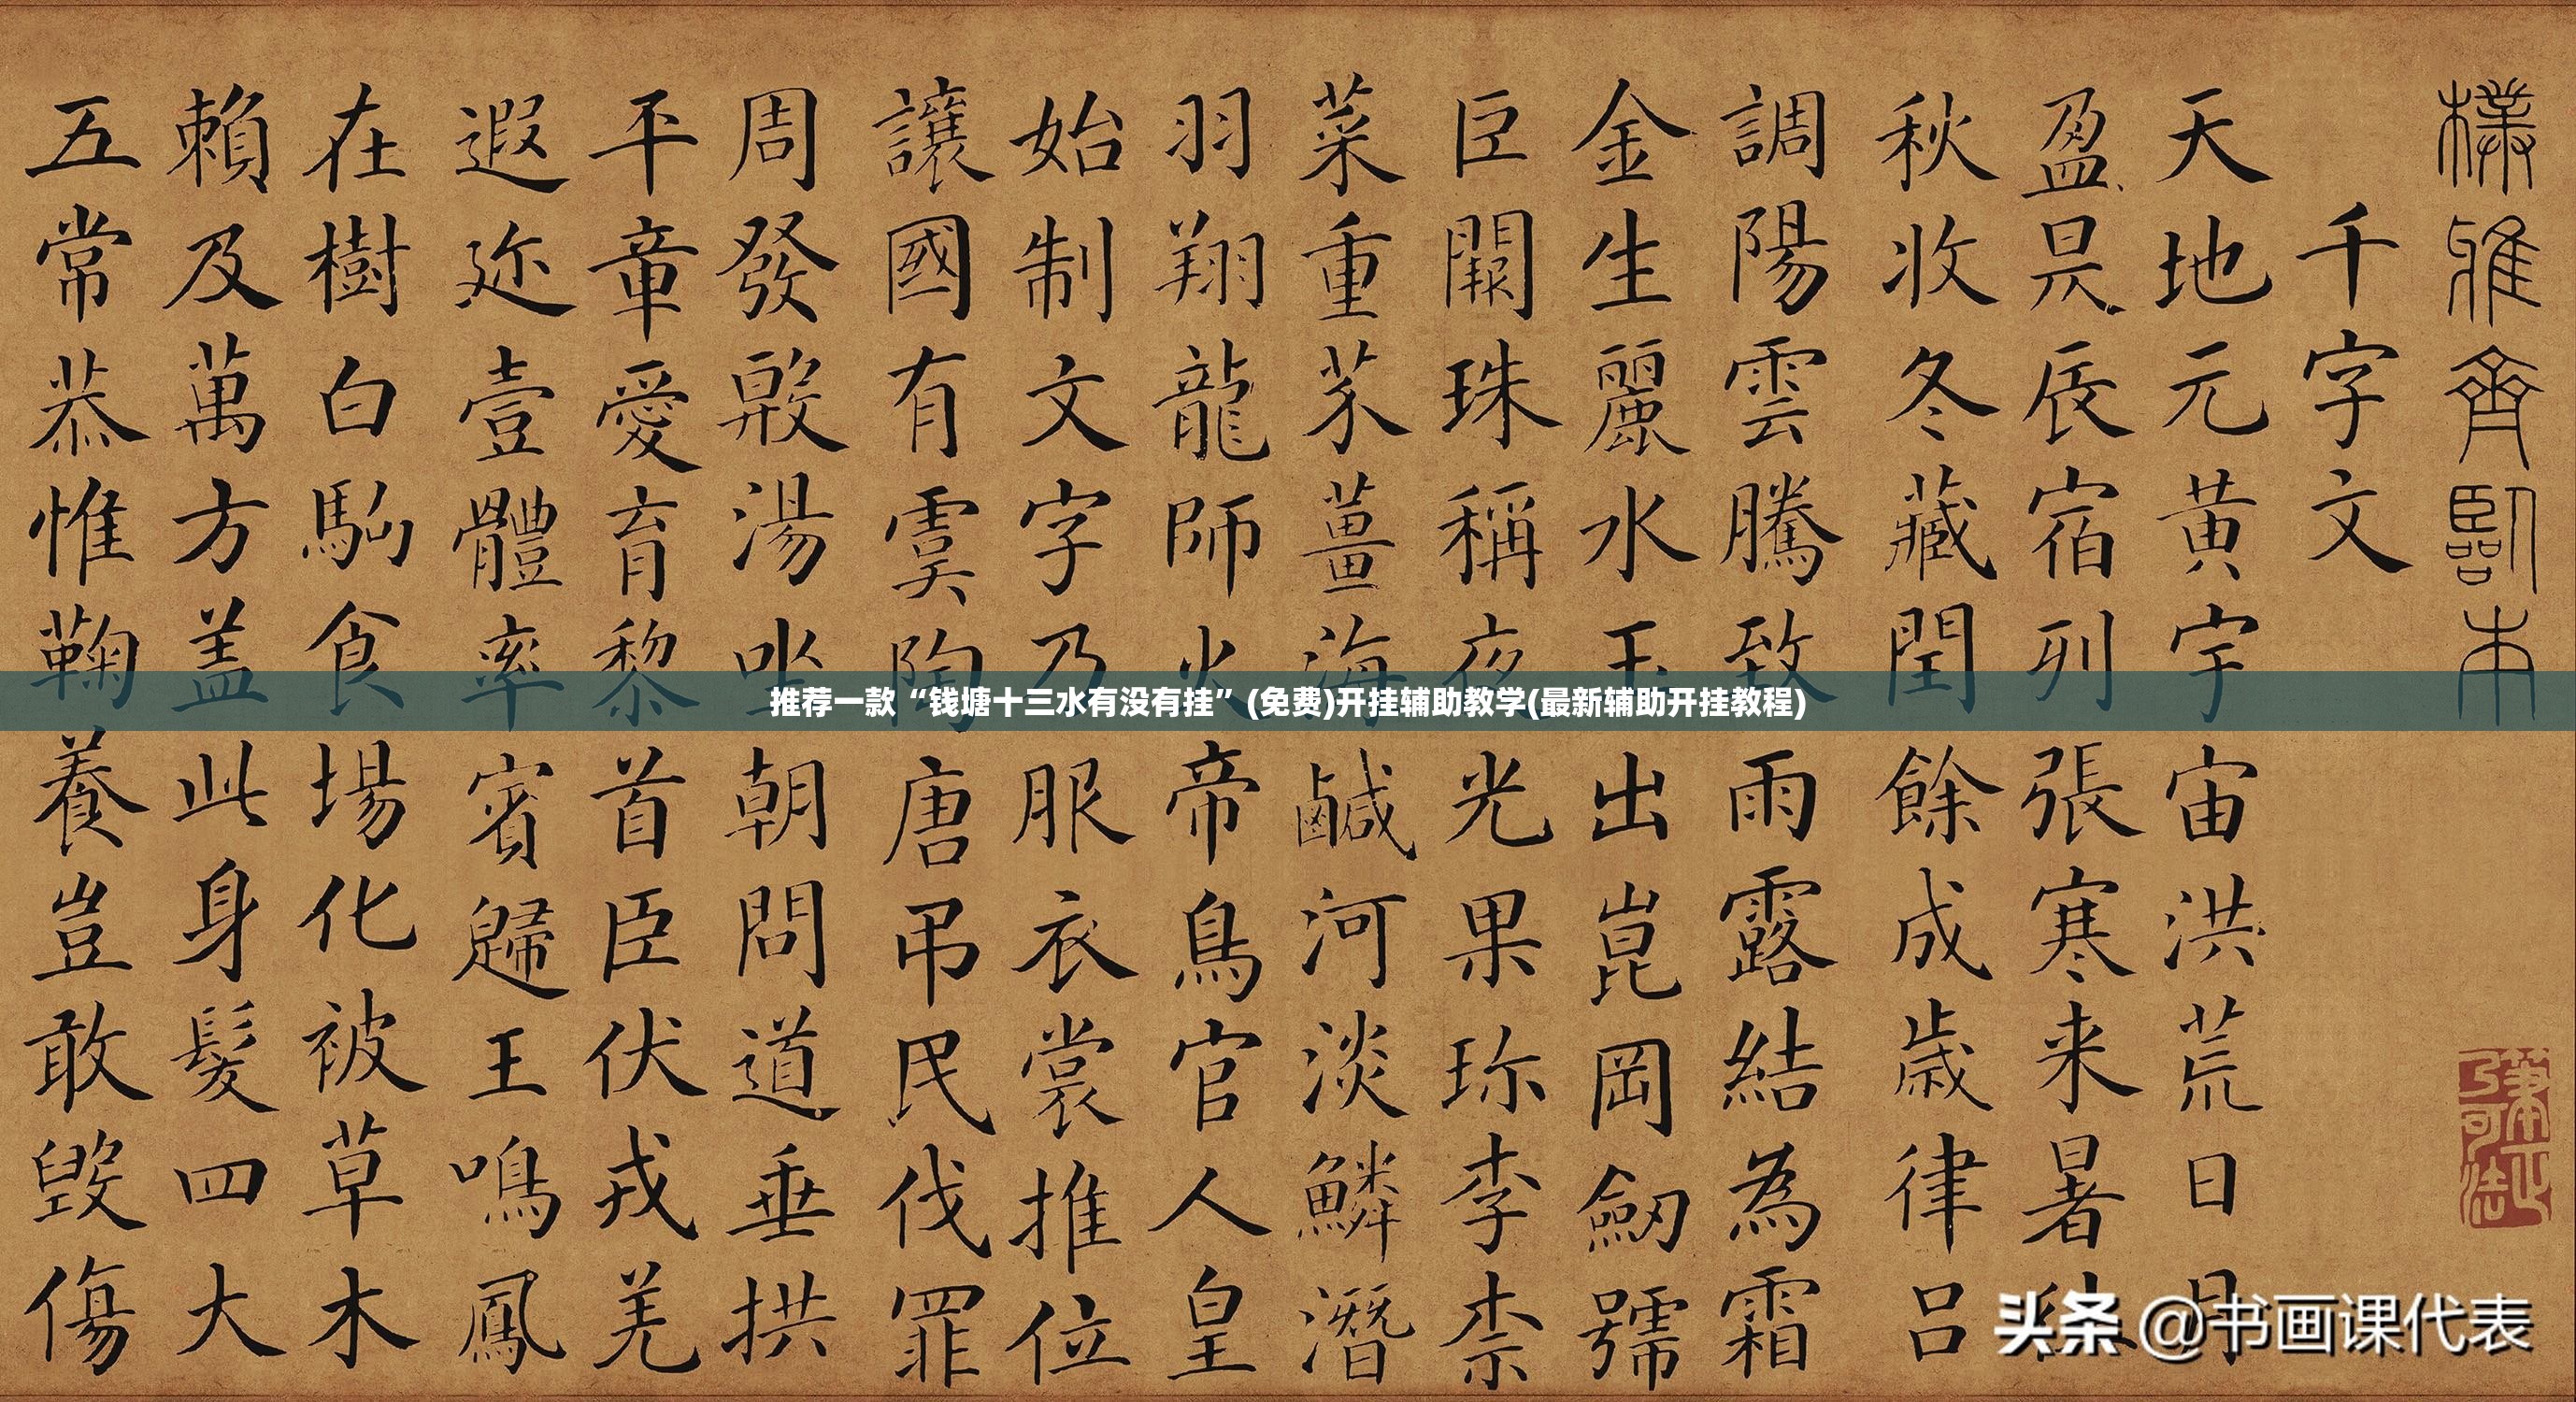 樸雅齋臨本
千字文
天地元黄宇宙洪荒日月
盈昃辰宿列張寒来暑
秋收冬藏閏餘成歲律吕
調陽雲騰致雨露結為霜
金生麗水玉出崑岡劒號
巨闕珠稱夜光果珎李柰
菜重芥薑海鹹河淡鱗潛
羽翔龍師火帝鳥官人皇
始制文字乃服衣裳推位
讓國有虞陶唐弔民伐罪
周發殷湯坐朝問道垂拱
平章愛育黎首臣伏戎羌
遐迩壹體率賓歸王鳴鳳
在樹白駒食場化被草木
賴及萬方盖此身髮四大
五常恭惟鞠養豈敢毀傷
推荐一款“钱塘十三水有没有挂”(免费)开挂辅助教学(最新辅助开挂教程)
头条 @书画课代表